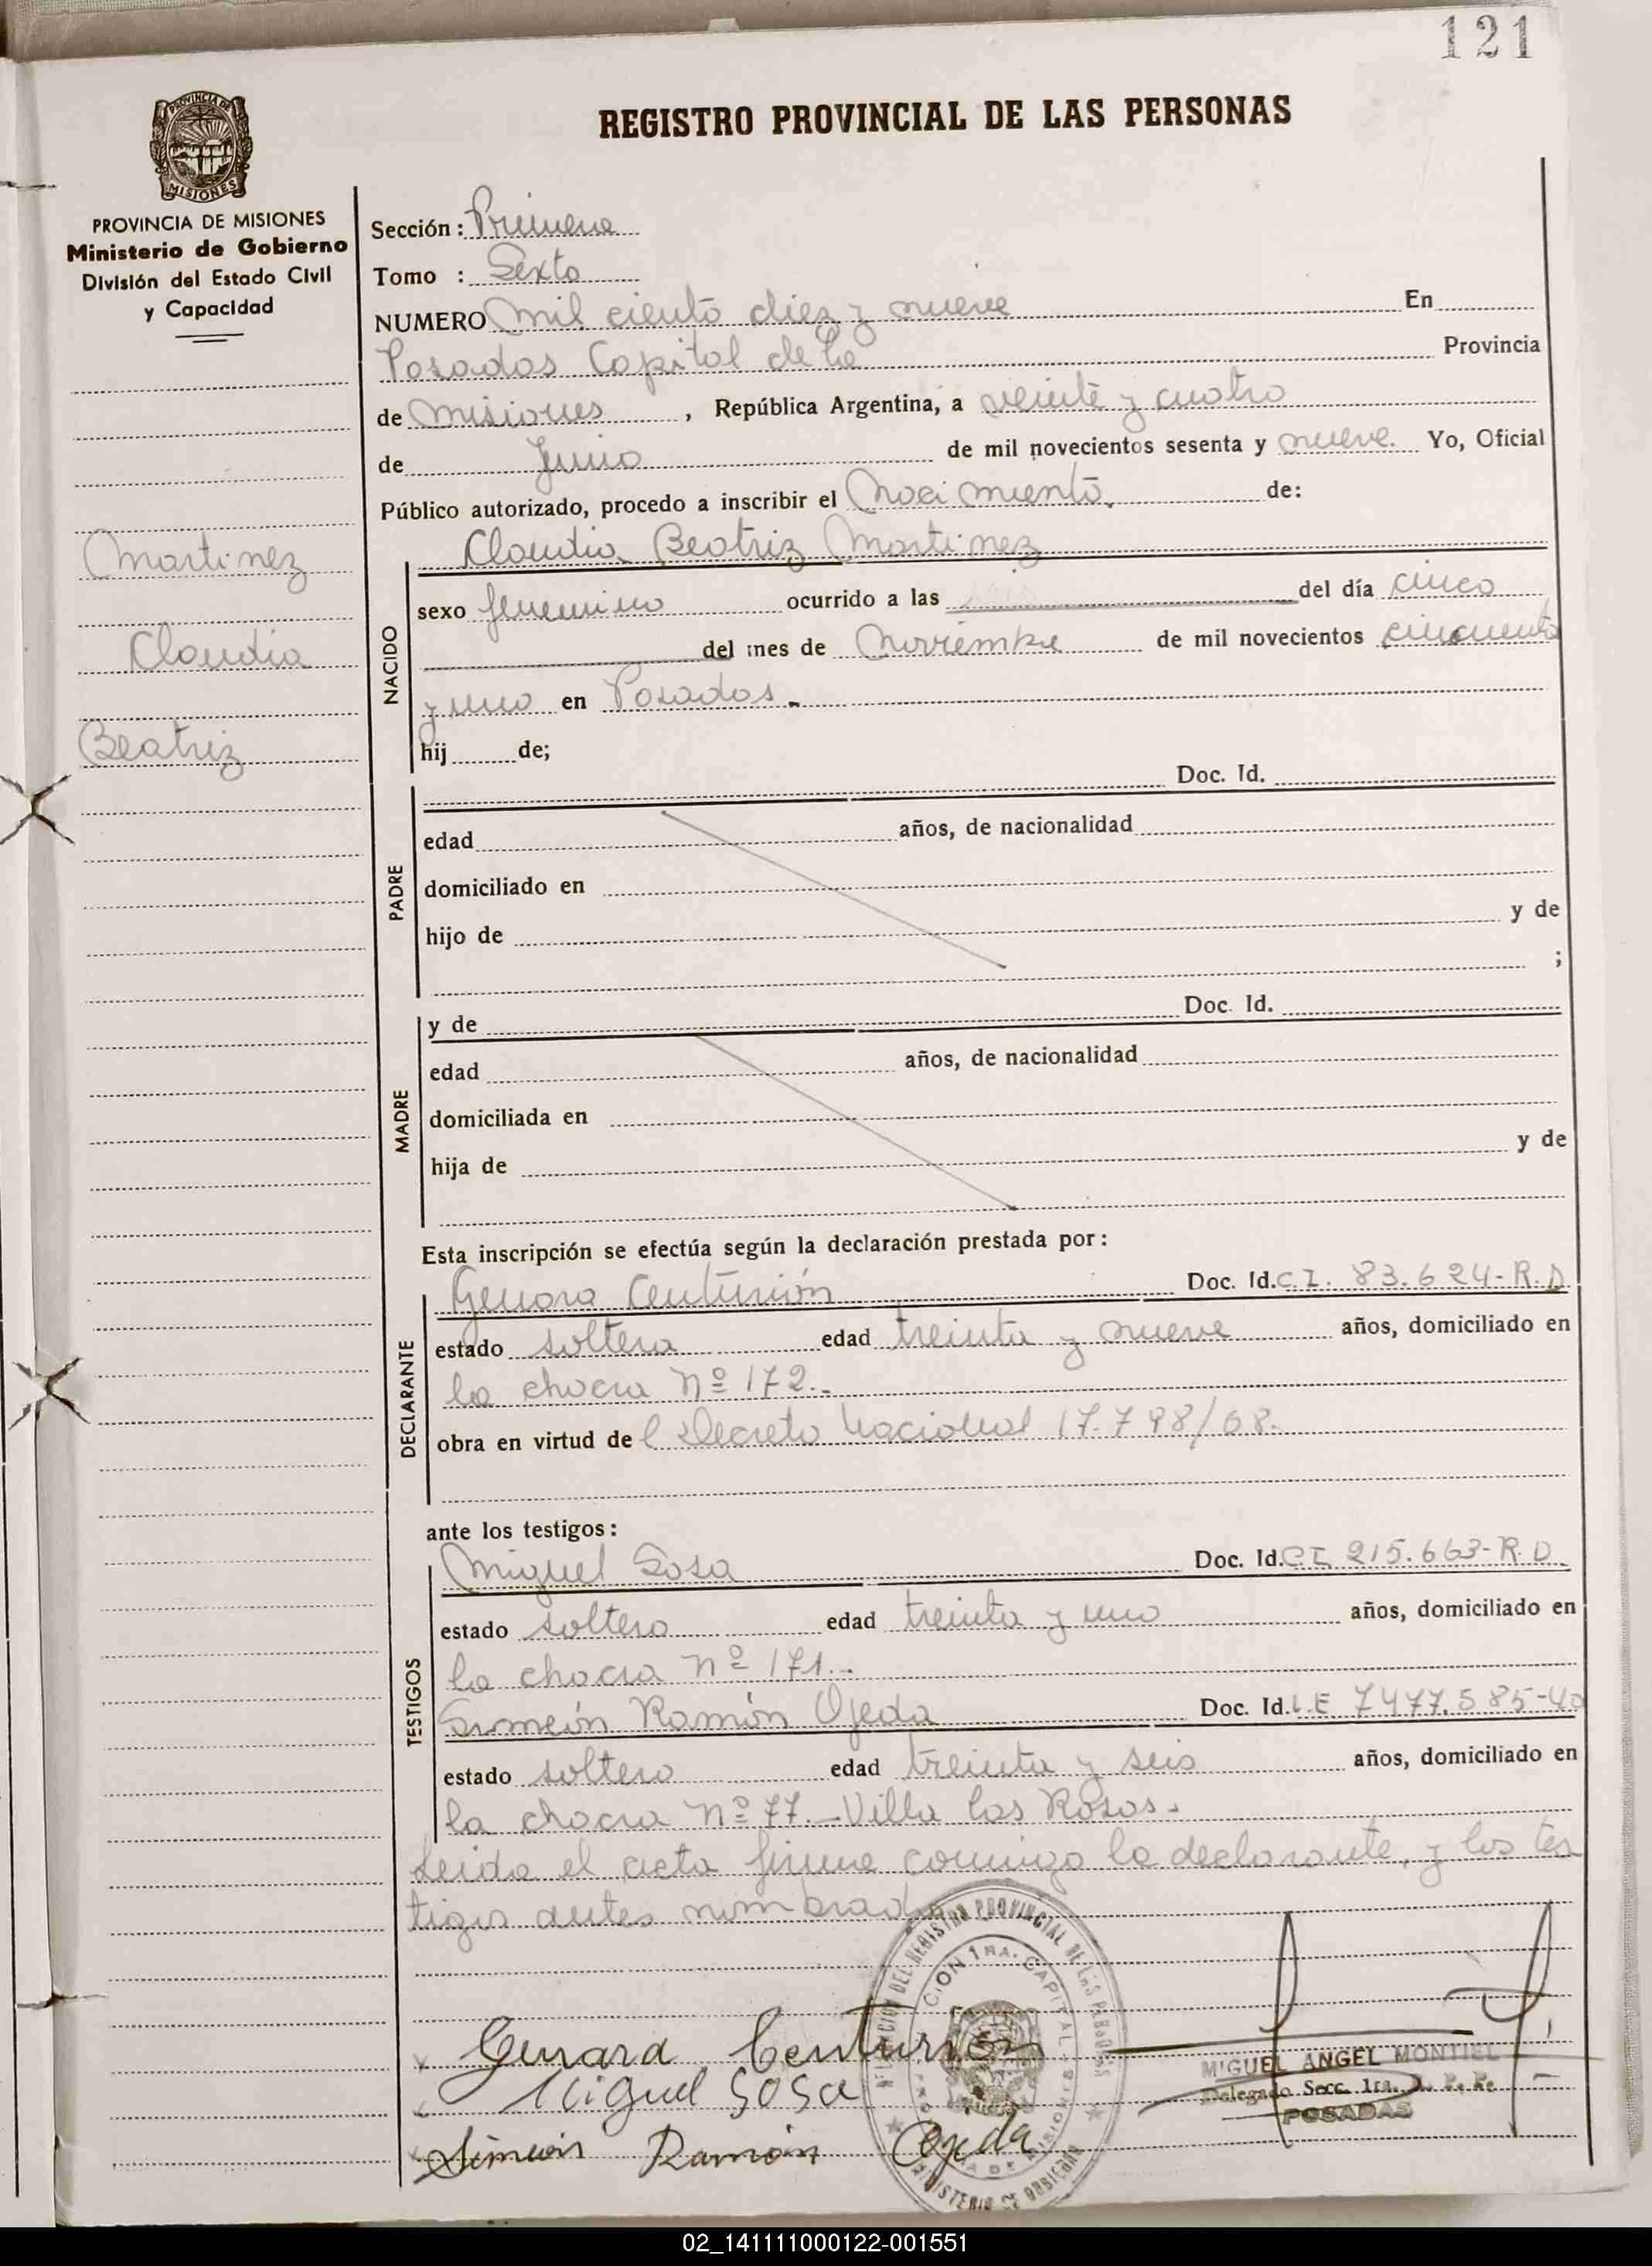 121
REGISTRO PROVINCIAL DE LAS PERSONAS
PROVINCIA DE
MISIONES
PROVINCIA DE MISIONES
Ministerio de Gobierno
División del Estado Civil
y Capacidad
Martinez
Claudia
Beatriz
Sección: Primera
Tomo : Sexto
NUMERO mil ciento diez y nueve En
Posadas Capital de la Provincia
de Misiones, República Argentina, a veinte y cuatro
de Junio de mil novecientos sesenta y nueve. Yo, Oficial
Público autorizado, procedo a inscribir el Nacimiento. de:
NACIDO
Claudia Beatriz Martinez
sexo femenino ocurrido a las del día cinco
del mes de Noviembre de mil novecientos cincuenta
y uno en Posadas.
hij de;
PADRE
Doc. Id.
edad años, de nacionalidad
domiciliado en
hijo de y de
;
MADRE
y de Doc. Id.
edad años, de nacionalidad
domiciliada en
hija de y de
Esta inscripción se efectúa según la declaración prestada por:
DECLARANTE
Genara Centurión Doc. Id. C.I. 83.624-R.D.
estado soltera edad treinta y nueve años, domiciliado en
la chacra Nº 172.
obra en virtud de l Decreto Nacional 17.798/68.
ante los testigos:
TESTIGOS
Miguel Sosa Doc. Id. CI 215.663-R.D.
estado soltero edad treinta y uno años, domiciliado en
la chacra Nº 171.
Simeón Ramón Ojeda Doc. Id. L.E 7477.585-40
estado soltero edad treinta y seis años, domiciliado en
la chacra Nº 77.-Villa las Rosas.
Leida el acta firma conmigo la declarante, y los tes
tigos antes nombrados
DEL REGISTRO PROVINCIAL DE LAS PERSONAS
CION 1RA. CAPITAL
MISIONES
MINISTERIO DE GOBIERNO
Genara Centurión
Miguel Sosa
Simeón Ramón Ojeda
MIGUEL ANGEL MONTIEL
Delegado Secc. 1ra. R. P. Pe.
POSADAS
02_141111000122-001551